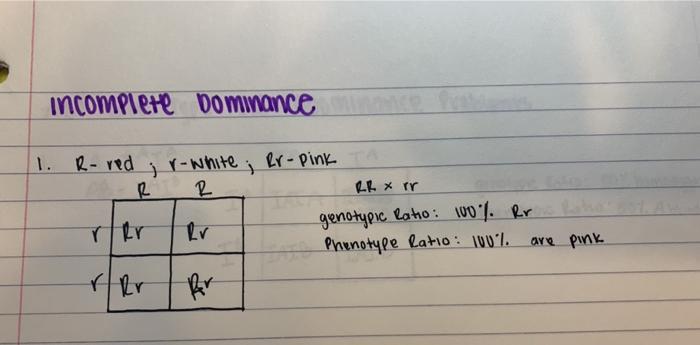 Incomplete Dominance
1. R-red ; r-white ; Rr-pink
R R
r Rr Rr
r Rr Rr
RR x rr
genotypic Ratio: 100% Rr
Phenotype Ratio: 100% are pink